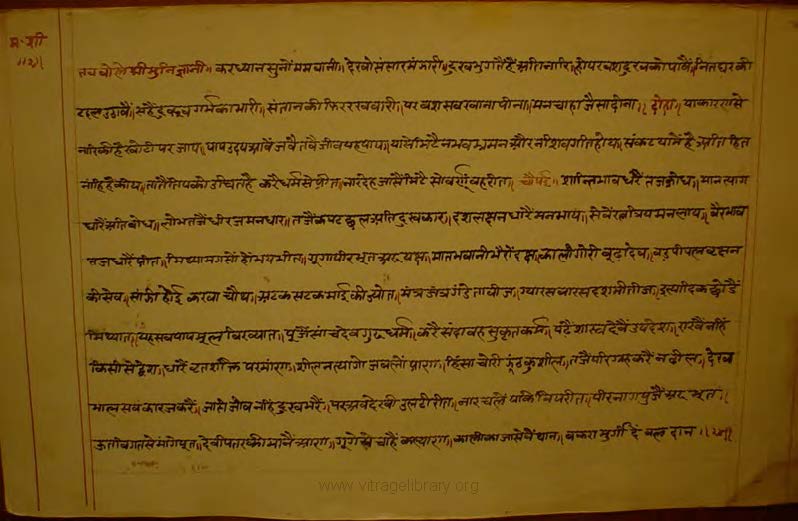 प्र॰ शी
॥२॥
तब बोले श्री मुनि ज्ञानी॥ कर ध्यान सुनों मम बानी॥ देखो संसार मंझारी॥ दुख भुगतैं हैं अति नारि॥ हो परवश दुख को पावैं॥ नित घर की
टहल उठावैं॥ सहैं दुक्ख गर्भ का भारी॥ संतान की फिर रखवारी॥ परवश सब खाना पीना॥ मन चाहा जैसा दीना॥ दोहा॥ या कारण से
नारि की है खोटी परजाय॥ पाप उदय आवें जबै तबै जीव यह पाय॥ यासे मिटै न भव भ्रमन और न शिव गति होय॥ संकट या में है अति हित
नांहि है कोय॥ तातैं तिय को उचित है करै धर्म से प्रीत॥ नारि देह जासैं मिटै सो वर्णूं वह रीत॥ चौपई॥ शान्ति भाव धरैं तज क्रोध॥ मान त्याग
धारैं अति बोध॥ लोभ तजैं धीरज मन धार॥ तजै कपट छल अति दुखकार॥ दश लक्षन धारैं मन भाय॥ सेवें रत्नत्रय मन लाय॥ वैर भाव
तज धारैं प्रीत॥ मिथ्या मग सों हों भयभीत॥ गूगा पीर भूत अरु यक्ष॥ मात भवानी भैरों दक्ष॥ काली गोरी बूढ़ा देव॥ बड़ पीपल वृक्षन
की सेव॥ सांझी होई करवा चौथ॥ अटक सटक माई की ज्योत॥ मंत्र जंत्र गंडे ताबीज॥ ग्यारस बारस दशमी तीज॥ इत्यादिक छोड़ैं
मिथ्यात॥ यह सब पाप मूल विख्यात॥ पूजें सांच देव गुरु धर्म॥ करै सदा वह सुकृत कर्म॥ पढ़ै शास्त्र देवैं उपदेश॥ राखैं नहिं
किसी से द्वेश॥ धारैं व्रत शक्ति परमांण॥ शील न त्यागे जबलों प्राण॥ हिंसा चोरी झूंठ कुशील॥ तजै परिग्रह करैं न ढील॥ देख
भाल सब कारज करैं॥ जासे जीव नहिं दुख भरैं॥ पर अब देखी उलटी रीत॥ नार चलें याके विपरीत॥ पीर नाग पुजैं अरु भूत॥
ऊत से मांगै पूत॥ देवी पतर की मानै आण॥ गूगे से चाहें कल्याण॥ का सेवें थान॥ बकरा मुर्गी दें बल दान॥
www.vitragelibrary.org